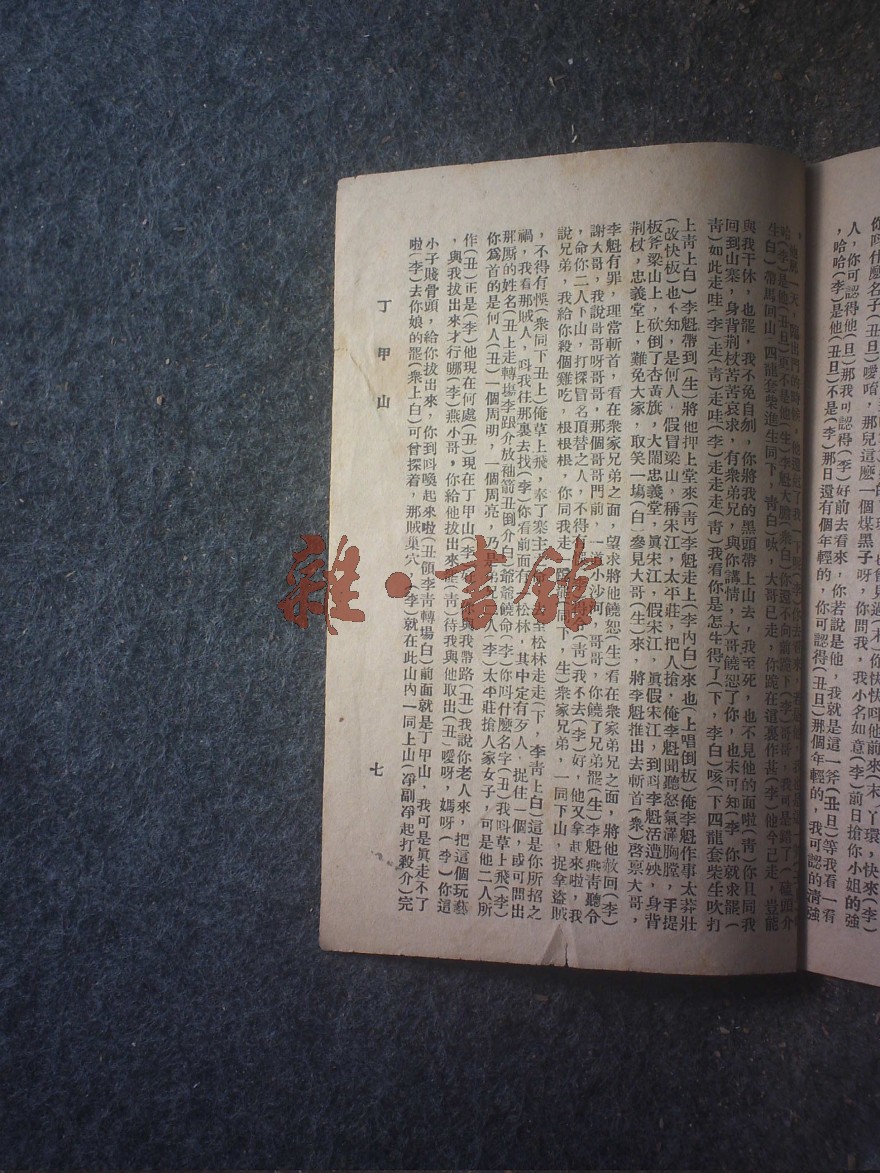 人，你可認得他(旦)那我可認得(李)好前去看來，你若說是他，我就是這一斧(丑旦)等我看一看
，哈哈(李)是他(丑旦)不是(李)那日還有個年輕的，你可認得(丑旦)那個年輕的，我可認的清強
生白)帶馬回山，四龍套柴進生同下，青白)哎，大哥已走，你跪在這裏作甚(李)他今已走，豈能
與我干休，也罷，我不免自刎，你將我的黑頭帶上山去，我至死，也不見他的面啦(青)你且同我
回到山寨，身背荆杖苦苦哀求，有衆弟兄，與你講情，大哥饒恕了你，也未可知(李)你就求罷(
青)如此走哇(李)走(青)走哇(李)走走走(青)我看你是怎生得了(下，李白)咳(下四龍套柴生吹打
上青上白)李魁帶到(生)將他押上堂來(青)李魁走上(李內白)來也(上唱倒板)俺李魁作事太莽壯
(改快板)也不知，是何人，假冒梁山，稱宋江，太平莊，把人搶，俺李魁聞聽怒氣滿胸膛，手提
板斧梁山上，砍倒了杏黃旗，大鬧忠義堂，眞宋江，假宋江，眞假宋江，到呌李魁活遭殃，身背
荆杖，忠義堂上，難免大家，取笑一塲(白)參見大哥(生)來，將李魁推出去斬首(衆)啓禀大哥，
李魁有罪，理當斬首，看在衆家兄弟之面，望求將他饒恕(生)看在衆家弟兄之面，將他赦回(李)
謝大哥，我說哥哥呀哥哥，那個哥哥門前，一道小沙河，哥哥，你饒了兄弟罷(生)李魁燕青聽令
，命你二人下山，打探冒名頂替之人，不得(青)我不去(李)好，他又拿起來啦，我
說兄弟，我給你殺個雞吃，根根根，你同我走同下，生)衆家兄弟，一同下山，捉拿盜賊
，不得有悞(衆同下丑上)俺草上飛，奉了寨主松林走走(下，李青上白)這是你所招之
禍，我看那賊人，呌我往那裏去找(李)你看前面松林，其中定有歹人，捉住一個，或可問出
那厮的姓名(丑上走轉塲李跟介放袖箭丑倒介白)爺爺饒命(李)你呌什麽名字(丑)我呌草上飛(李)
你爲首的是何人(丑)一個周明，一個周亮，乃是弟兄二人(李)太平莊搶人家女子，可是他二人所
作(丑)正是(李)他現在何處(丑)現在丁甲山(李)與我帶路(丑)我說你老人來，把這個玩藝
，與我拔出來才行哪(李)燕小哥，你給他拔出來罷(青)待我與他取出(丑)噯呀，媽呀(李)你這
小子賤骨頭，給你拔出來，你到呌喚起來啦(丑領李青轉塲白)前面就是丁甲山，我可是眞走不了
啦(李)去你娘的罷(衆上白)可曾探着，那賊巢穴(李)就在此山內一同上山(凈副凈起打殺介)完
丁甲山
七
雜·書館